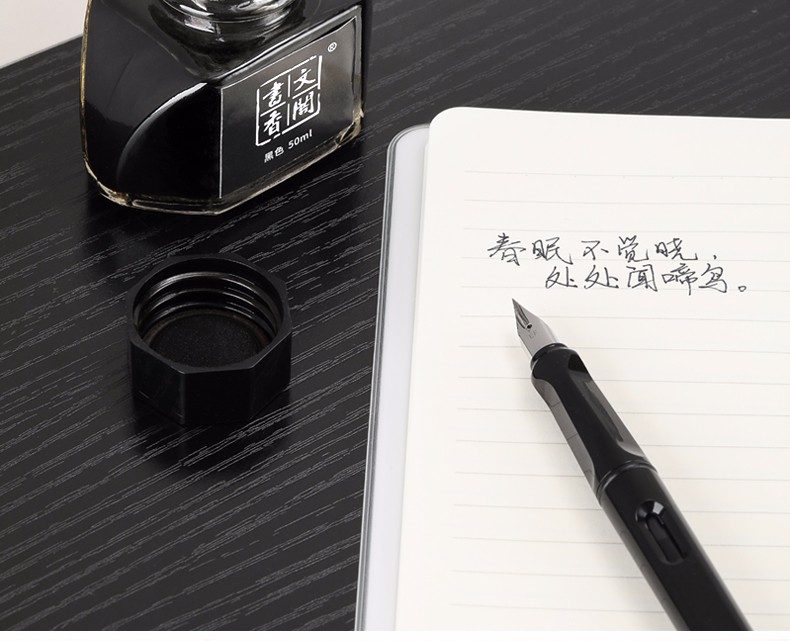 書文
香
®
黑色 50ml
春眠不觉晓，
处处闻啼鸟。